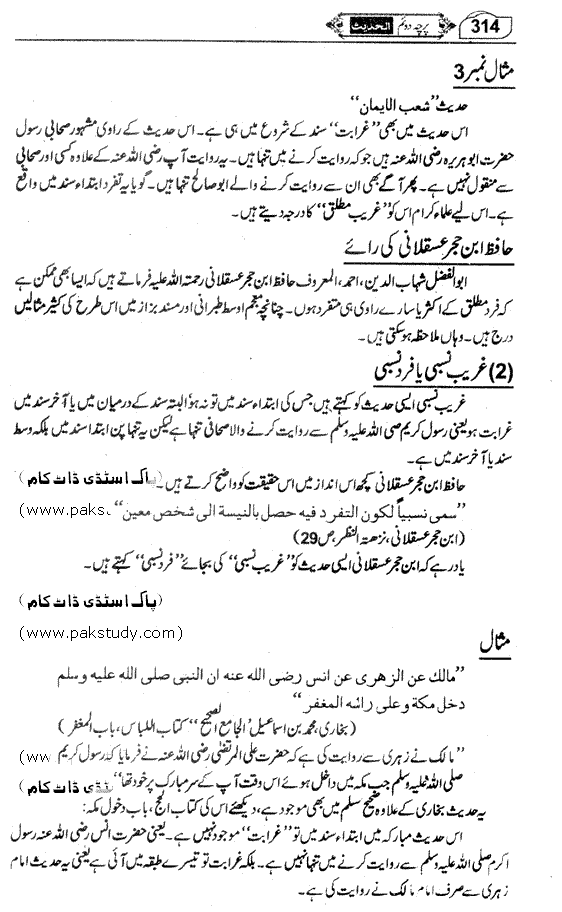 314 الحدیث پرچہ دوئم
مثال نمبر 3
حدیث ’’شعب الایمان‘‘
اس حدیث میں بھی ’’غرابت‘‘ سند کے شروع میں ہی ہے۔ اس حدیث کے راوی مشہور صحابی رسول
حضرت ابوہریرہ رضی اللہ عنہ ہیں جو کہ روایت کرنے میں تنہا ہیں۔ یہ روایت آپ رضی اللہ عنہ کے علاوہ کسی اور صحابی
سے منقول نہیں ہے۔ پھر آگے بھی ان سے روایت کرنے والے ابو صالح تنہا ہیں۔ گویا یہ تفرد ابتداء سند میں واقع
ہے۔ اس لیے علماء کرام اس کو ’’غریب مطلق‘‘ کا درجہ دیتے ہیں۔
حافظ ابن حجر عسقلانی کی رائے
ابوالفضل شہاب الدین، احمد، المعروف حافظ ابن حجر عسقلانی رحمتہ اللہ علیہ فرماتے ہیں کہ ایسا بھی ممکن ہے
کہ فرد مطلق کے اکثر یا سارے راوی ہی متفرد ہوں۔ چنانچہ معجم اوسط طبرانی اور مسند بزاز میں اس طرح کی کثیر مثالیں
درج ہیں۔ وہاں ملاحظہ ہو سکتی ہیں۔
(2) غریب نسبی یا فرد نسبی
غریب نسبی ایسی حدیث کو کہتے ہیں جس کی ابتداء سند میں تو نہ ہو البتہ سند کے درمیان میں یا آخر سند میں
غرابت ہو یعنی رسول کریم صلی اللہ علیہ وسلم سے روایت کرنے والا صحابی تنہا ہے لیکن یہ تنہا پن ابتدا سند میں بلکہ وسط
سند یا آخر سند میں ہے۔
حافظ ابن حجر عسقلانی کچھ اس انداز میں اس حقیقت کو واضح کرتے ہیں۔ پاک اسٹڈی ڈاٹ کام )
’’سمی نسبیاً لکون التفرد فیه حصل بالنیسة الی شخص معین‘‘ (www.paks
(ابن حجر عسقلانی، نزھتہ النظر، ص 29)
یاد رہے کہ ابن حجر عسقلانی ایسی حدیث کو ’’غریب نسبی‘‘ کی بجائے ’’فرد نسبی‘‘ کہتے ہیں۔
(پاک اسٹڈی ڈاٹ کام )
(www.pakstudy.com)
مثال
’’مالك عن الزهری عن انس رضی الله عنه ان النبی صلی الله علیه وسلم
دخل مکة وعلی رائسه المغفر‘‘
(بخاری، محمد بن اسماعیل ’الجامع الصحیح‘‘ کتاب اللباس، باب المغفر)
’’مالک نے زہری سے روایت کی ہے کہ حضرت علی المرتضٰی رضی اللہ عنہ نے فرمایا کہ رسول کریم (ww
صلی اللہ علیہ وسلم جب مکہ میں داخل ہوئے اس وقت آپ کے سر مبارک پر خود تھا‘‘ ٹڈی ڈاٹ کام )
یہ حدیث بخاری کے علاوہ صحیح مسلم میں بھی موجود ہے، دیکھئے اس کی کتاب الحج، باب دخول مکہ:
اس حدیث مبارکہ میں ابتداء سند میں تو ’’غرابت‘‘ موجود نہیں ہے۔ یعنی حضرت انس رضی اللہ عنہ رسول
اکرم صلی اللہ علیہ وسلم سے روایت کرنے میں تنہا نہیں ہے۔ بلکہ غرابت تو تیسرے طبقہ میں آئی ہے یعنی یہ حدیث امام
زہری سے صرف امام مالک نے روایت کی ہے۔